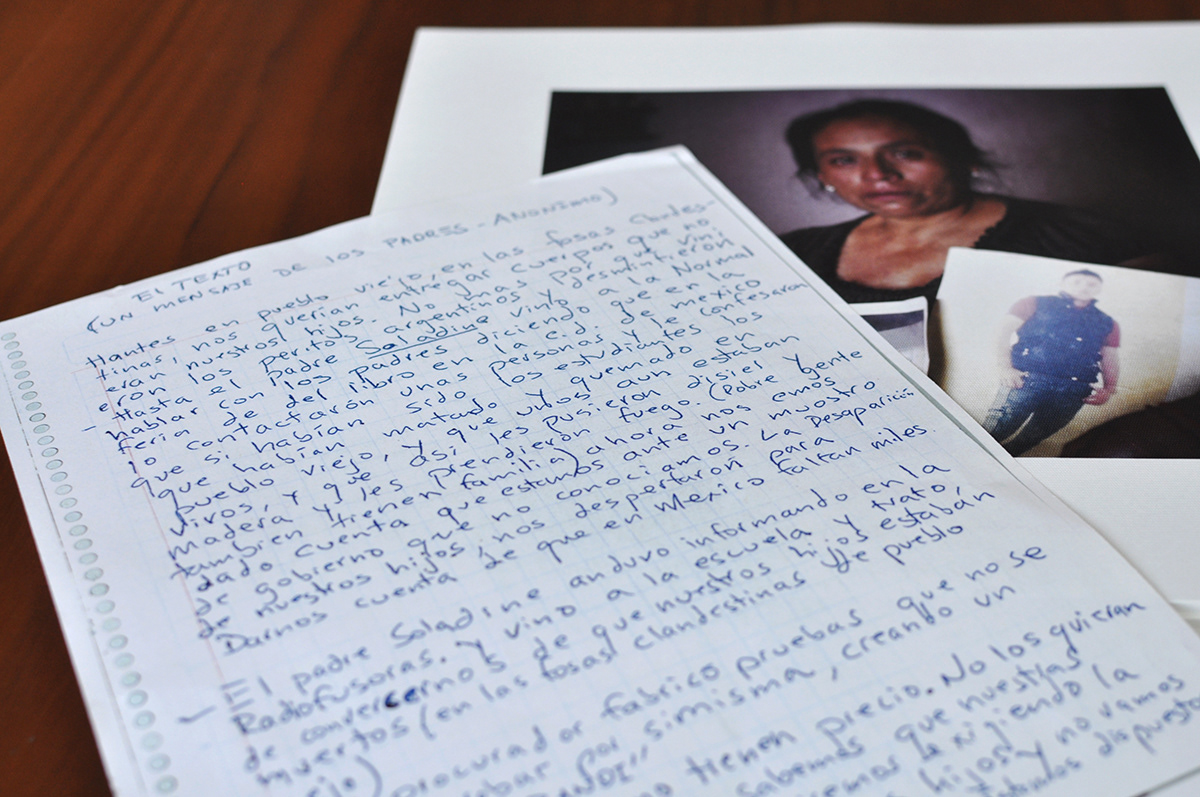 EL TEXTO
(UN MENSAJE DE LOS PADRES - ANONIMO)
Hantes, en pueblo viejo, en las fosas clandes-
tinas, nos querian entregar cuerpos que no
eran nuestros hijos. No mas por que vini
eron los peritos argentinos y desmintieron
- Hasta el padre Soladine vino a la Normal
hablar con los padres diciendo que en la
feria del libro en la c.d. de mexico
lo contactarón unas personas y le confesaron
que si habían sido los estudiantes los
que habían matado y quemado en
pueblo viejo, y que unos aun estaban
vivos, y que así les pusieron disiel y
madera y les prendierón fuego. (Pobre gente
tambien tienen familia) ahora nos emos
dado cuenta que estamos ante un muostro
de gobierno que no conociamos. La Desaparición
de nuestros hijos, nos despertaron para
Darnos cuenta de que en Mexico faltan miles.
- El padre Soladine anduvo informando en la
Radofusoras. Y vino a la escuela y trato,
de convercernos de que nuestros hijos estabán
muertos (en las fosas clandestinas de pueblo
procurador fabrico pruebas que no se
por simisma, creando un
tienen precio. No los quieran
sabemos que nuestras
la
hijos y no vamos